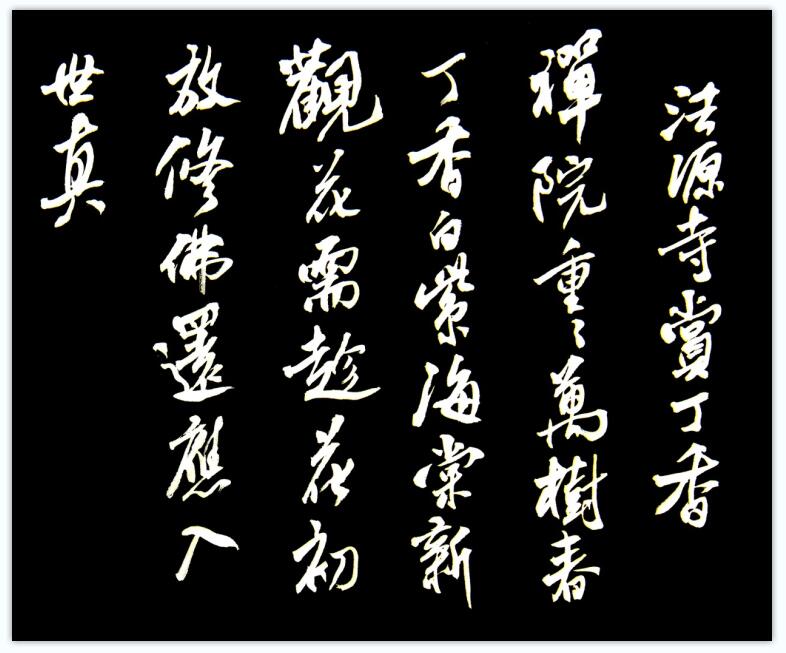 法源寺賞丁香
禪院重〻萬樹春
丁香白紫海棠新
觀花需趁花初
放修佛還應入
世真